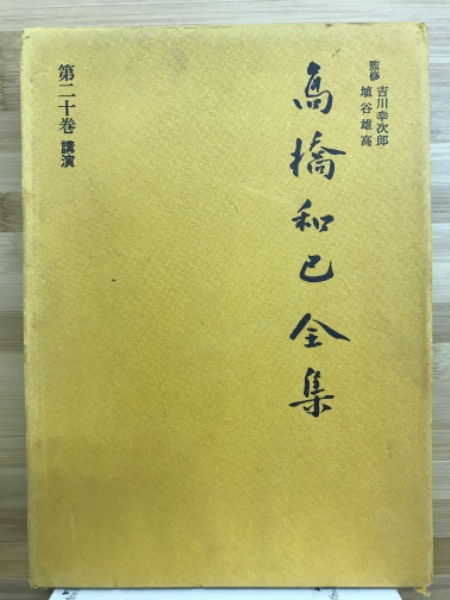 監修 吉川幸次郎
埴谷雄高
高橋和巳全集
第二十巻 講演